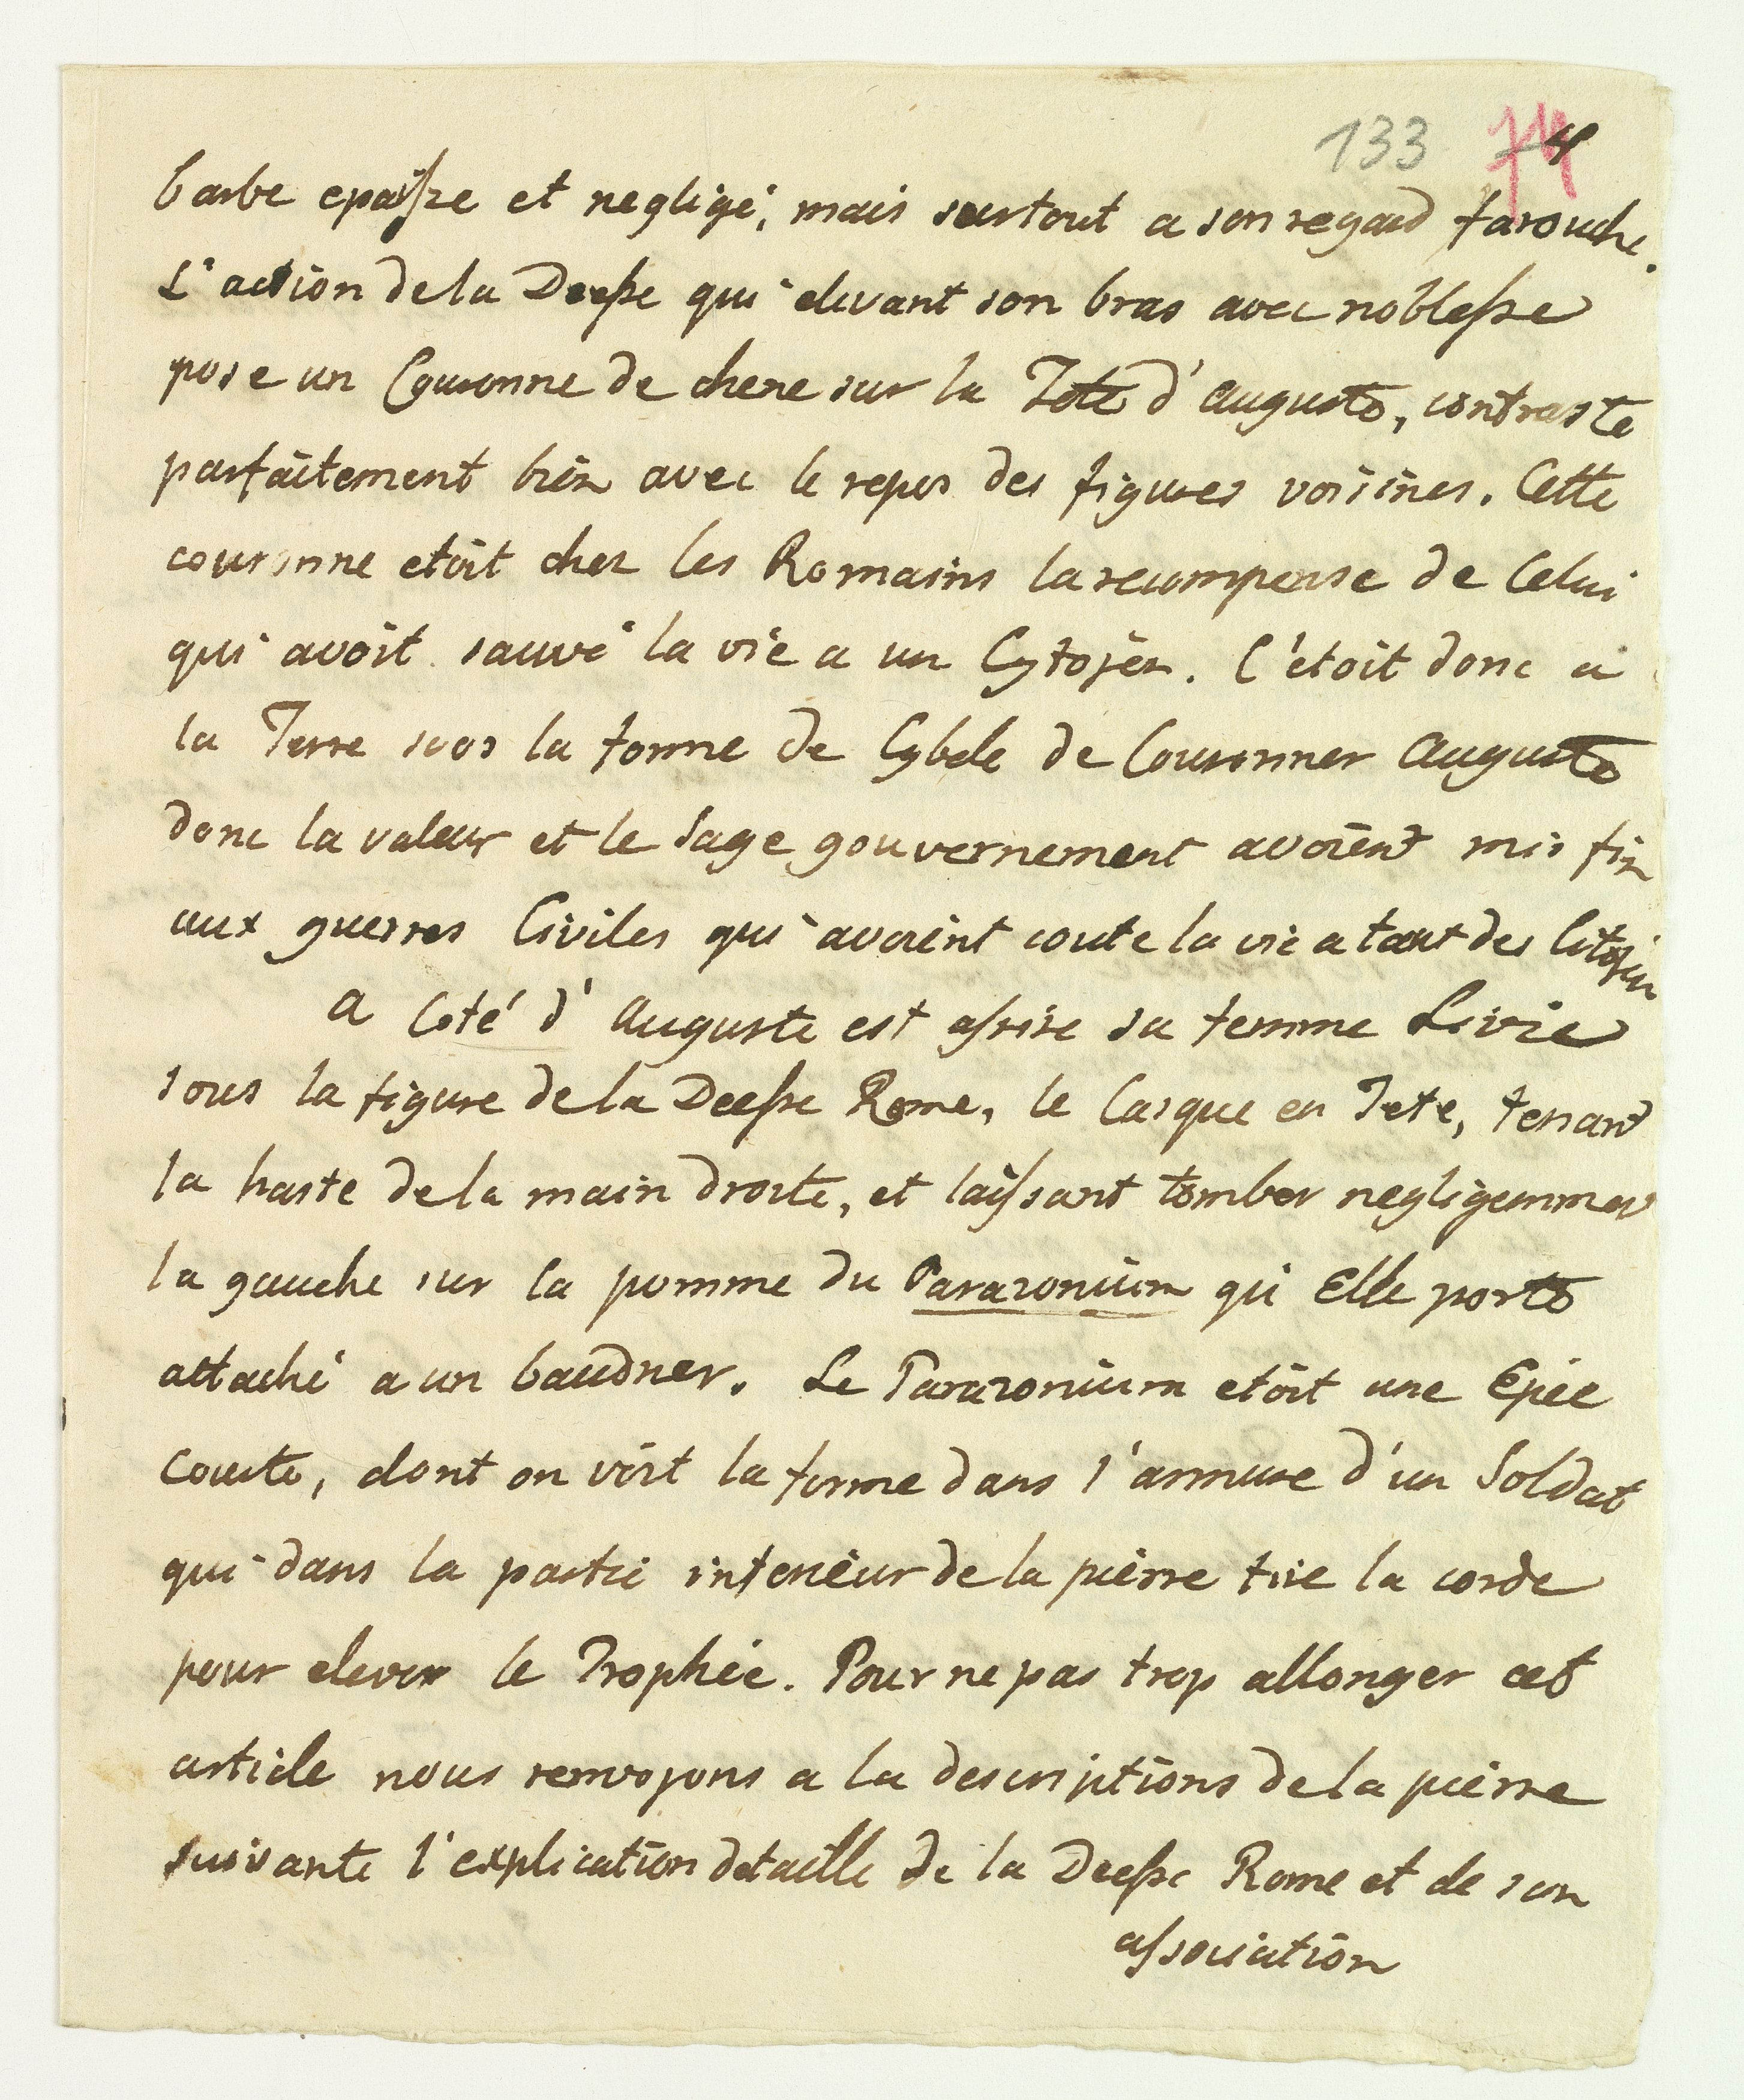 133 74 4
barbe epaisse et negligé, mais surtout a son regard farouche.
L'action de la Deesse qui elevant son bras avec noblesse
pose un Couronne de chene sur la Tete d'Auguste, contraste
parfaitement bien avec le repos des figures voisines. Cette
couronne etoit chez les Romains la recompense de Celui
qui avoit sauvé la vie a un Cytojen. C'etoit donc a
la Terre sous la forme de Cybele de Couronner Auguste
donc la valeur et le sage gouvernement avoient mis fin
aux guerres Civiles qui avoient coute la vie a tant des Citojen
a Coté d'Auguste est assise sa femme Livie
sous la figure de la Deesse Rome, le Casque en Tete, tenant
la haste de la main droite, et laissant tomber negligemment
la gauche sur la pomme du Parazonium qu'Elle porte
attaché a un baudrier. Le Parazonium etoit une Epée
Courte, dont on voit la forme dans l'armure d'un Soldat
qui dans la partie interieur de la pierre tire la corde
pour elever le Trophée. Pour ne pas trop allonger cet
article nous renvojons a la descriptions de la pierre
suivante l'explication detaille de la Deesse Rome et de son
association